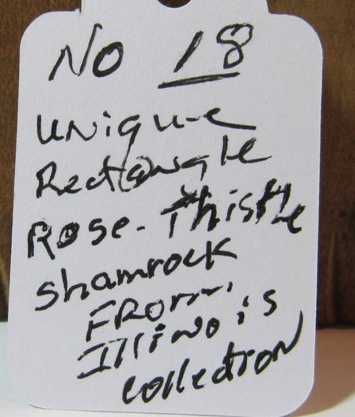 No 18
unique
Rectangle
Rose-Thistle
shamrock
FROM
Illinois
collection